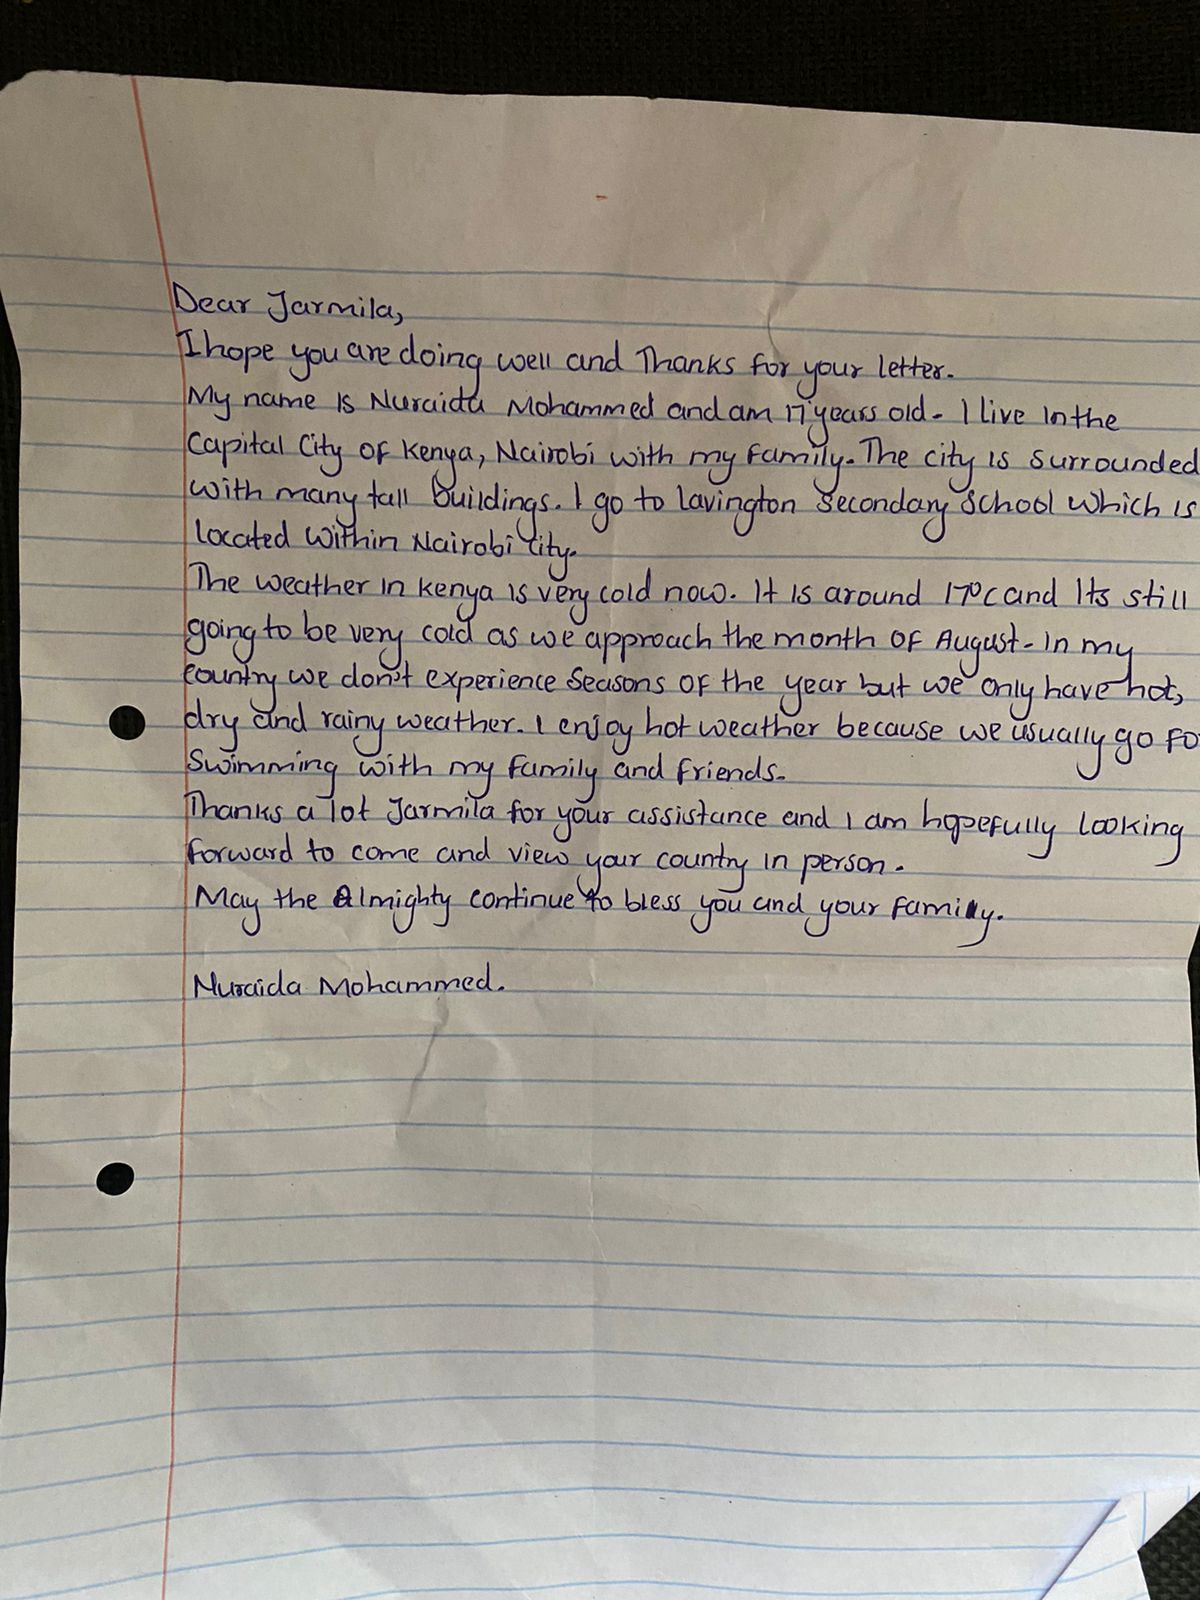 Dear Jarmila,
I hope you are doing well and Thanks for your letter.
My name is Nuraida Mohammed and am 17 years old. I live in the
Capital City of Kenya, Nairobi with my family. The city is surrounded
with many tall buildings. I go to Lavington Secondary School which is
located within Nairobi City.
The weather in Kenya is very cold now. It is around 17°C and Its still
going to be very cold as we approach the month of August. In my
country we don't experience Seasons of the year but we only have hot,
dry and rainy weather. I enjoy hot weather because we usually go fo
Swimming with my family and friends.
Thanks a lot Jarmila for your assistance and I am hopefully looking
forward to come and view your country in person.
May the Almighty continue to bless you and your family.
Nuraida Mohammed.